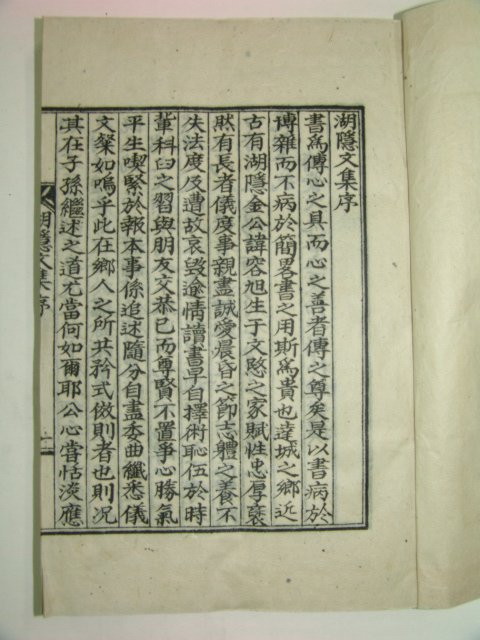 湖隱文集序
書爲傳心之具而心之善者傳之尊矣是以書病於
博雜而不病於簡畧書之用斯爲貴也達城之鄕近
古有湖隱金公諱容旭生于文愍之家賦性忠厚裒
然有長者儀度事親盡誠愛晨昏之節志軆之養不
失法度及遭故哀毀逾情讀書早自擇術恥伍於時
軰科臼之習與朋友交恭己而尊賢不置爭心勝氣
平生喫緊於報本事係追述隨分自盡委曲纖悉儀
文粲如嗚乎此在鄕人之所共矜式倣則者也則況
其在子孫繼述之道尤當何如爾耶公心嘗恬淡應
湖隱文集序
一